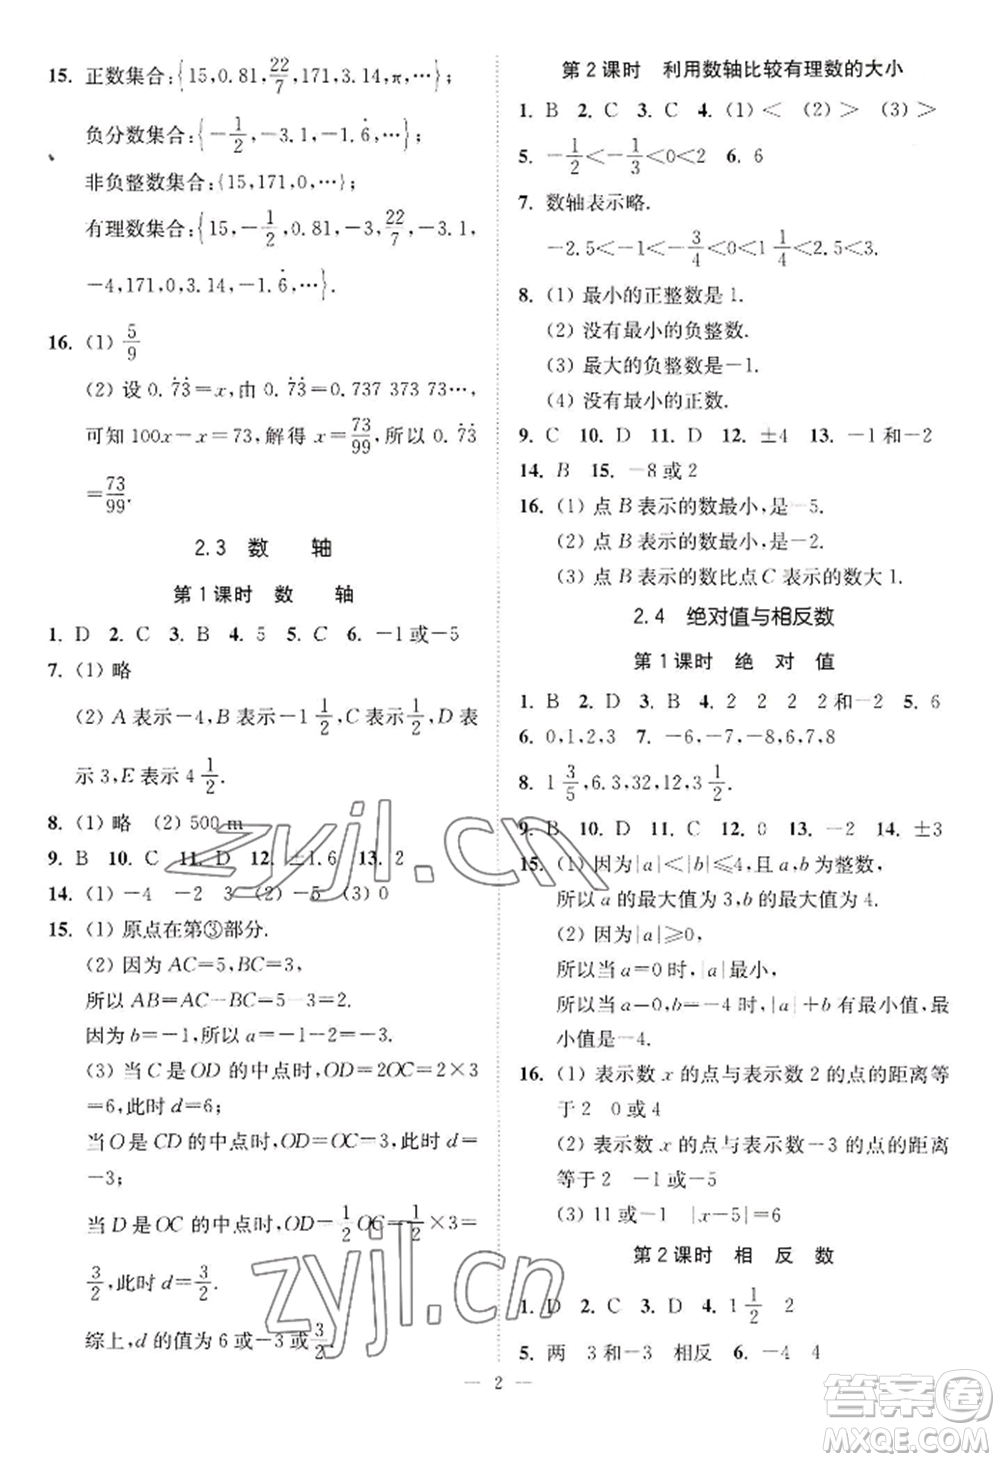 15. 正数集合:{15,0.81,22/7,171,3.14,π,…};
负分数集合:{-1/2,-3.1,-1.6̇,…};
非负整数集合:{15,171,0,…};
有理数集合:{15,-1/2,0.81,-3,22/7,-3.1,
-4,171,0,3.14,-1.6̇,…}.
16. (1) 5/9
(2) 设 0.7̇3̇=x,由 0.7̇3̇=0.737 373 73…,
可知 100x-x=73,解得 x=73/99,所以 0.7̇3̇
=73/99.
2.3 数 轴
第1课时 数 轴
1. D 2. C 3. B 4. 5 5. C 6. -1或-5
7. (1) 略
(2) A 表示-4,B 表示-1 1/2,C 表示 1/2,D 表
示 3,E 表示 4 1/2.
8. (1) 略 (2) 500 m
9. B 10. C 11. D 12. ±1.6 13. 2
14. (1) -4 -2 3 (2) -5 (3) 0
15. (1) 原点在第③部分.
(2) 因为 AC=5,BC=3,
所以 AB=AC-BC=5-3=2.
因为 b=-1,所以 a=-1-2=-3.
(3) 当 C 是 OD 的中点时,OD=2OC=2×3
=6,此时 d=6;
当 O 是 CD 的中点时,OD=OC=3,此时 d=
-3;
当 D 是 OC 的中点时,OD=1/2 OC=1/2×3=
3/2,此时 d=3/2.
综上,d 的值为 6 或-3 或 3/2.
第2课时 利用数轴比较有理数的大小
1. B 2. C 3. C 4. (1) < (2) > (3) >
5. -1/2<-1/3<0<2 6. 6
7. 数轴表示略.
-2.5<-1<-3/4<0<1 1/4<2.5<3.
8. (1) 最小的正整数是 1.
(2) 没有最小的负整数.
(3) 最大的负整数是-1.
(4) 没有最小的正数.
9. C 10. D 11. D 12. ±4 13. -1和-2
14. B 15. -8或2
16. (1) 点 B 表示的数最小,是-5.
(2) 点 B 表示的数最小,是-2.
(3) 点 B 表示的数比点 C 表示的数大 1.
2.4 绝对值与相反数
第1课时 绝 对 值
1. B 2. D 3. B 4. 2 2 2 2和-2 5. 6
6. 0,1,2,3 7. -6,-7,-8,6,7,8
8. 1 3/5,6.3,32,12,3 1/2.
9. B 10. D 11. C 12. 0 13. -2 14. ±3
15. (1) 因为|a|<|b|≤4,且 a,b 为整数,
所以 a 的最大值为 3,b 的最大值为 4.
(2) 因为|a|≥0,
所以当 a=0 时,|a|最小,
所以当 a=0,b=-4 时,|a|+b 有最小值,最
小值是-4.
16. (1) 表示数 x 的点与表示数 2 的点的距离等
于 2 0 或 4
(2) 表示数 x 的点与表示数-3 的点的距离
等于 2 -1 或-5
(3) 11 或-1 |x-5|=6
第2课时 相 反 数
1. D 2. C 3. D 4. 1 1/2 2
5. 两 3和-3 相反 6. -4 4
— 2 —
zyjl.cn
zyjl.cn
答案圈
MXQE.COM